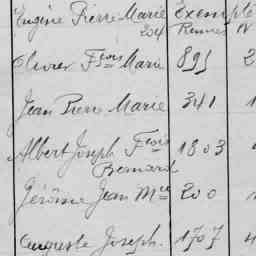 Eugène Pierre Marie Exempté
204 Rennes N
Olivier Fçois Marie 895 2
Jean Pierre Marie 341 1
Albert Joseph Fçois 1803
Bernard
Jérôme Jean Mie 200 1
Auguste Joseph. 1707 4